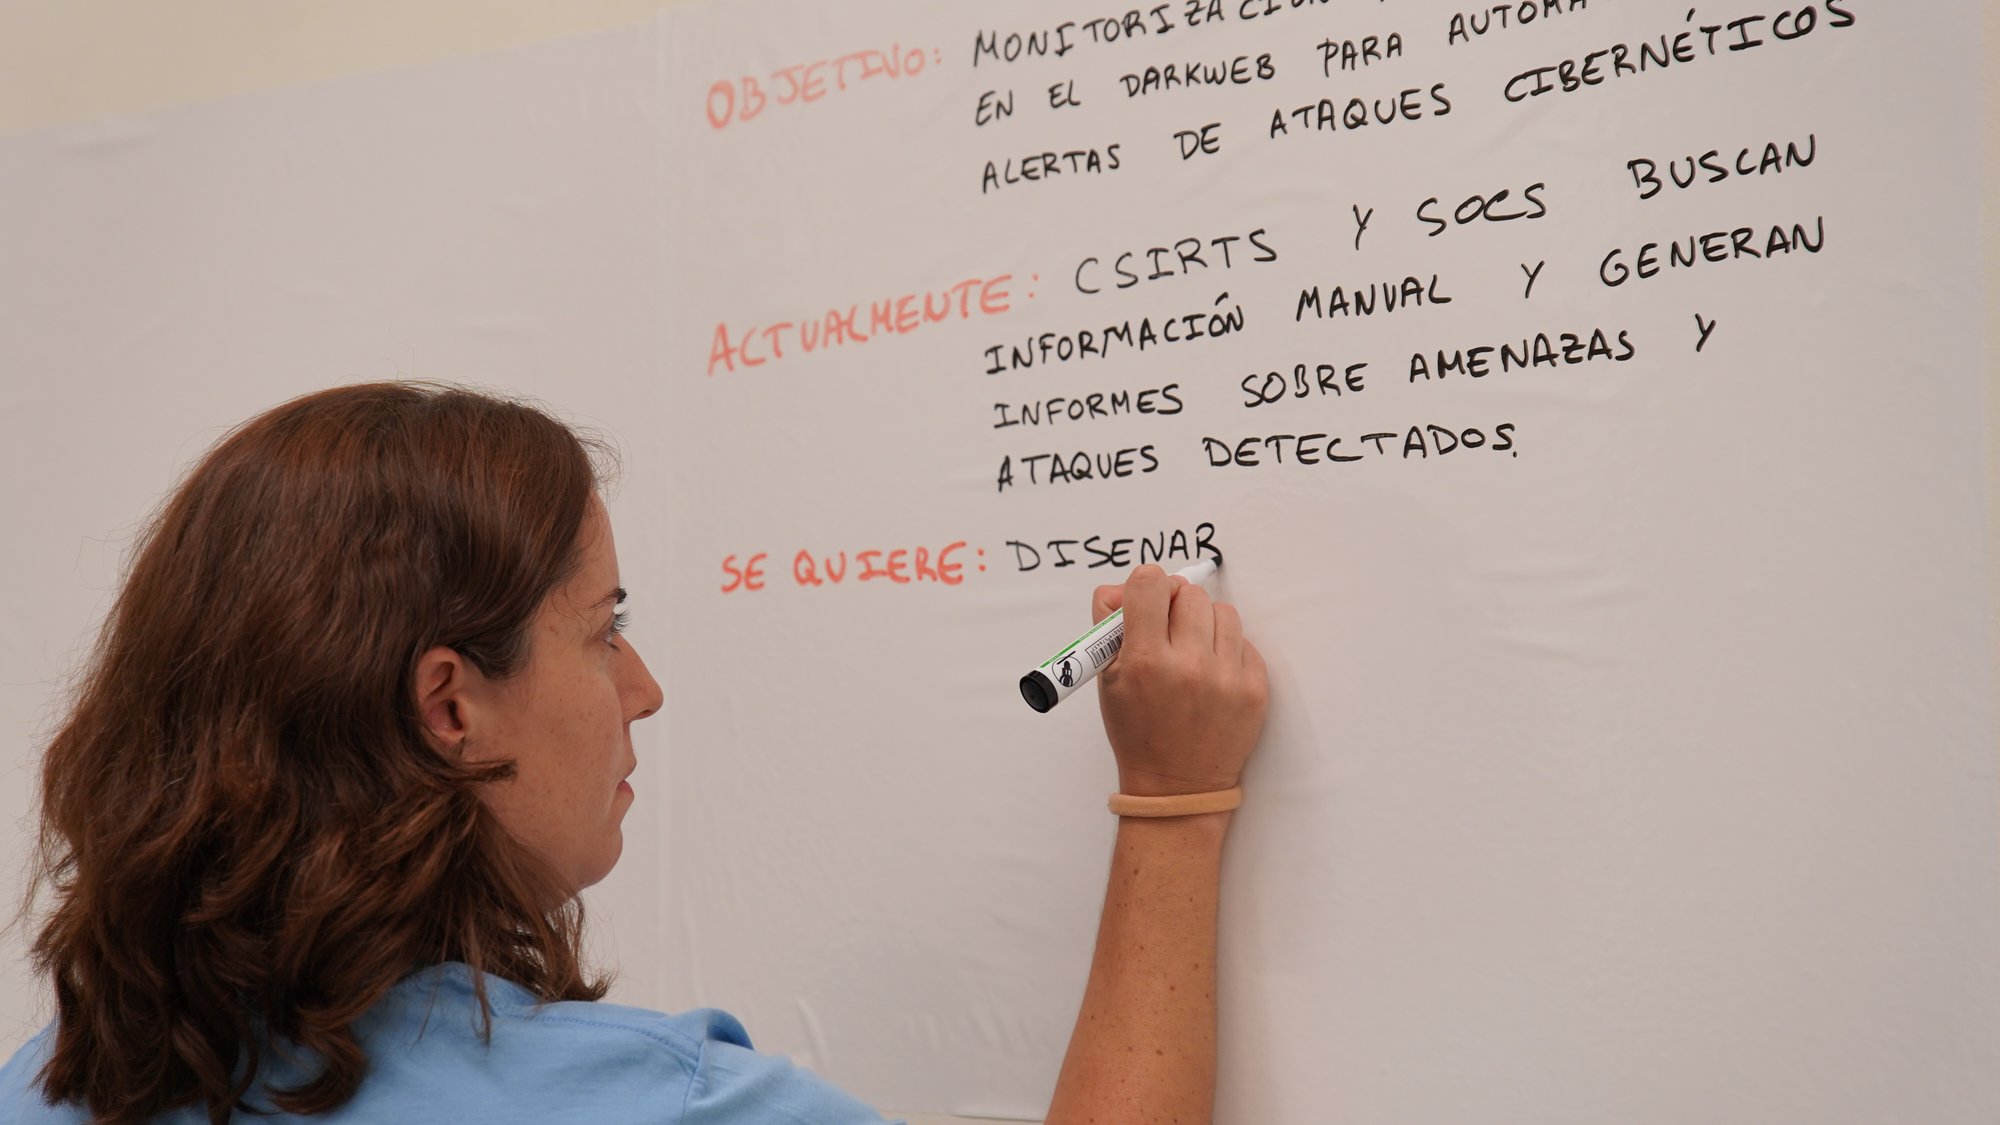 OBJETIVO: MONITORIZACIÓN
EN EL DARKWEB PARA
ALERTAS DE ATAQUES CIBERNÉTICOS
ACTUALMENTE: CSIRTS Y SOCS BUSCAN
INFORMACIÓN MANUAL Y GENERAN
INFORMES SOBRE AMENAZAS Y
ATAQUES DETECTADOS.
SE QUIERE: DISENAR